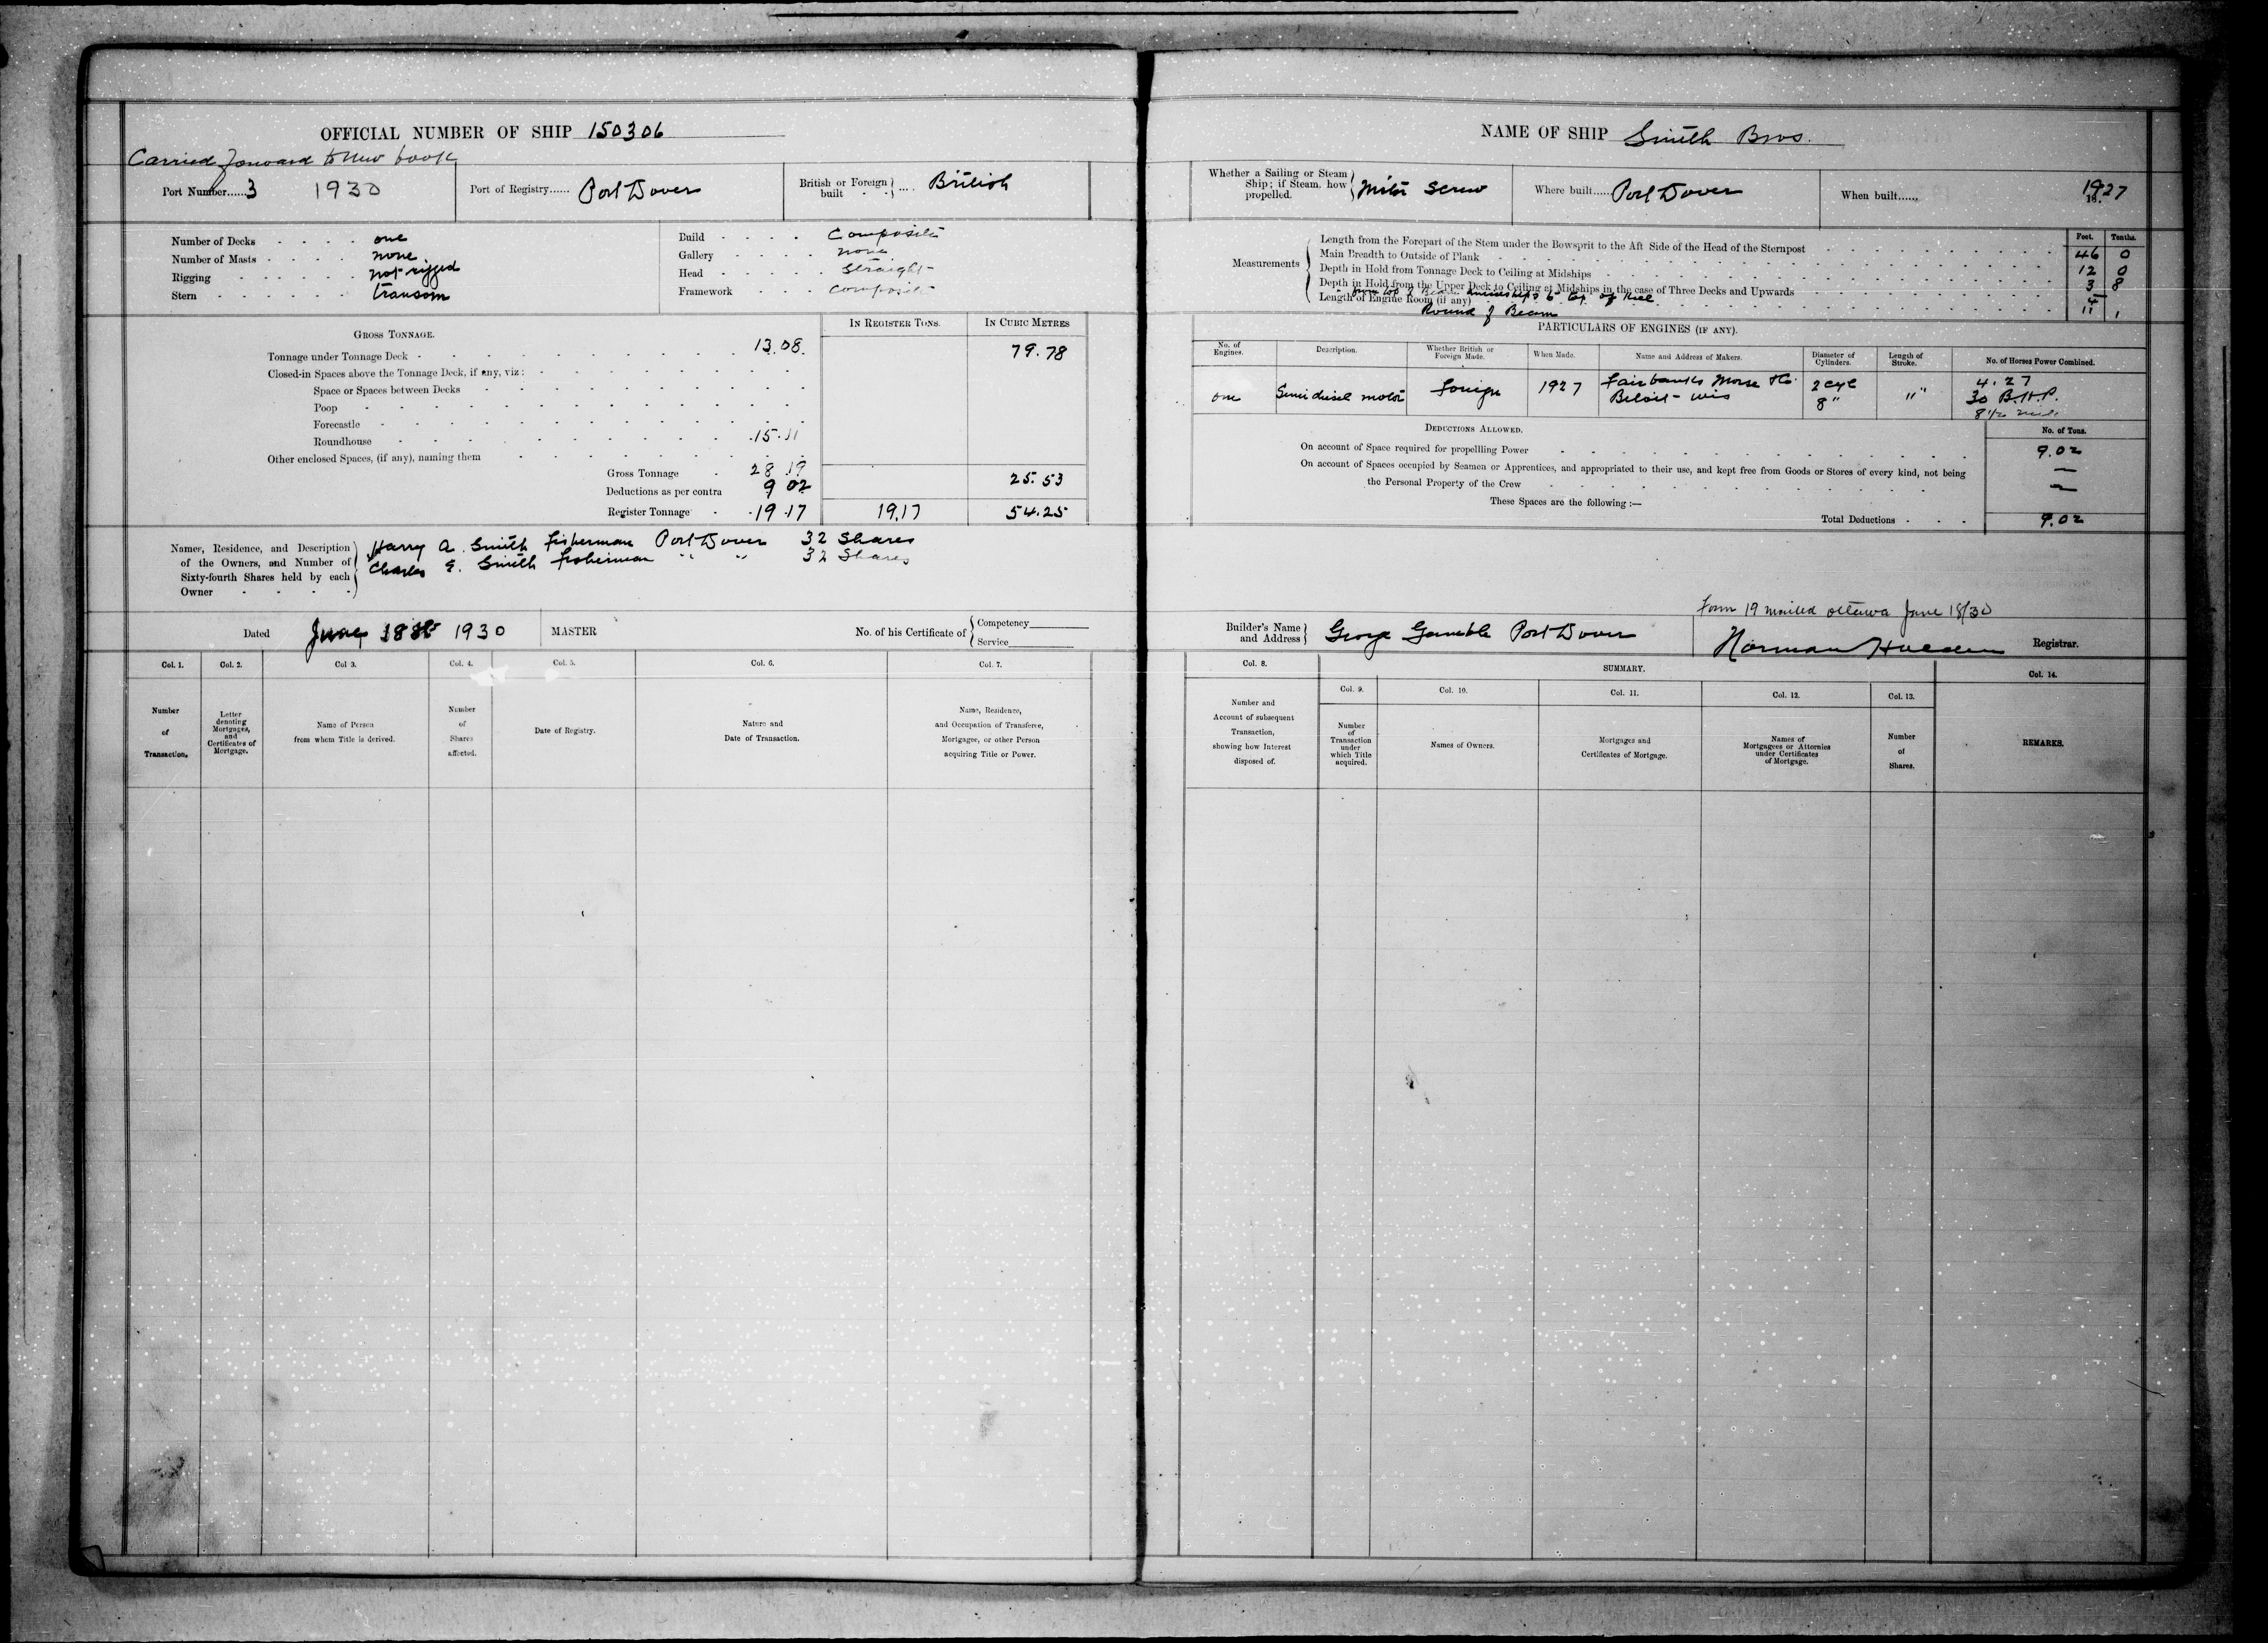 OFFICIAL NUMBER OF SHIP 150306
Carried forward to new book
Port Number......3 1930
Port of Registry...... Port Dover
British or Foreign built .... British
Number of Decks one
Number of Masts none
Rigging not rigged
Stern transom
Build Composite
Gallery none
Head Straight
Framework Composite
GROSS TONNAGE.
IN REGISTER TONS.
IN CUBIC METRES
Tonnage under Tonnage Deck 13.08 79.78
Closed-in Spaces above the Tonnage Deck, if any, viz:
Space or Spaces between Decks
Poop
Forecastle
Roundhouse 15.11
Other enclosed Spaces, (if any), naming them
Gross Tonnage 28 19
Deductions as per contra 9 02 25.53
Register Tonnage 19.17 19.17 54.25
Names, Residence, and Description of the Owners, and Number of Sixty-fourth Shares held by each Owner
Harry A. Smith Fisherman Port Dover 32 Shares
Charles E. Smith fisherman " " 32 Shares
Dated June 18 1930
MASTER
No. of his Certificate of
Competency
Service
Col. 1. Col. 2. Col 3. Col. 4. Col. 5. Col. 6. Col. 7.
Number of Transaction.
Letter denoting Mortgages, and Certificates of Mortgage.
Name of Person from whom Title is derived.
Number of Shares affected.
Date of Registry.
Nature and Date of Transaction.
Name, Residence, and Occupation of Transferee, Mortgagee, or other Person acquiring Title or Power.
NAME OF SHIP Smith Bros.
Whether a Sailing or Steam Ship; if Steam, how propelled. Motor Screw
Where built...... Port Dover
When built...... 1927
18.
Measurements
Feet. Tenths.
Length from the Forepart of the Stem under the Bowsprit to the Aft Side of the Head of the Sternpost 46 0
Main Breadth to Outside of Plank 12 0
Depth in Hold from Tonnage Deck to Ceiling at Midships 3 8
Depth in Hold from the Upper Deck to Ceiling at Midships in the case of Three Decks and Upwards
from top of Beam amidships to top of Keel 4
Length of Engine Room (if any) 11 1
Round of Beam
PARTICULARS OF ENGINES (IF ANY).
No. of Engines.
Description.
Whether British or Foreign Made.
When Made.
Name and Address of Makers.
Diameter of Cylinders.
Length of Stroke.
No. of Horses Power Combined.
one
Semi diesel motor
foreign
1927
Fairbanks Morse & Co.
Beloit - Wis
2 cyl
8"
"
4.27
30 B.H.P.
DEDUCTIONS ALLOWED.
No. of Tons.
On account of Space required for propellling Power 9.02
On account of Spaces occupied by Seamen or Apprentices, and appropriated to their use, and kept free from Goods or Stores of every kind, not being —
the Personal Property of the Crew —
These Spaces are the following:—
Total Deductions 9.02
Form 19 mailed Ottawa June 18/30
Builder's Name and Address George Gamble Port Dover
Norman
Registrar.
Col. 8.
SUMMARY.
Col. 9. Col. 10. Col. 11. Col. 12. Col. 13. Col. 14.
Number and Account of subsequent Transaction, showing how Interest disposed of.
Number of Transaction under which Title acquired.
Names of Owners.
Mortgages and Certificates of Mortgage.
Names of Mortgagees or Attornies under Certificates of Mortgage.
Number of Shares.
REMARKS.